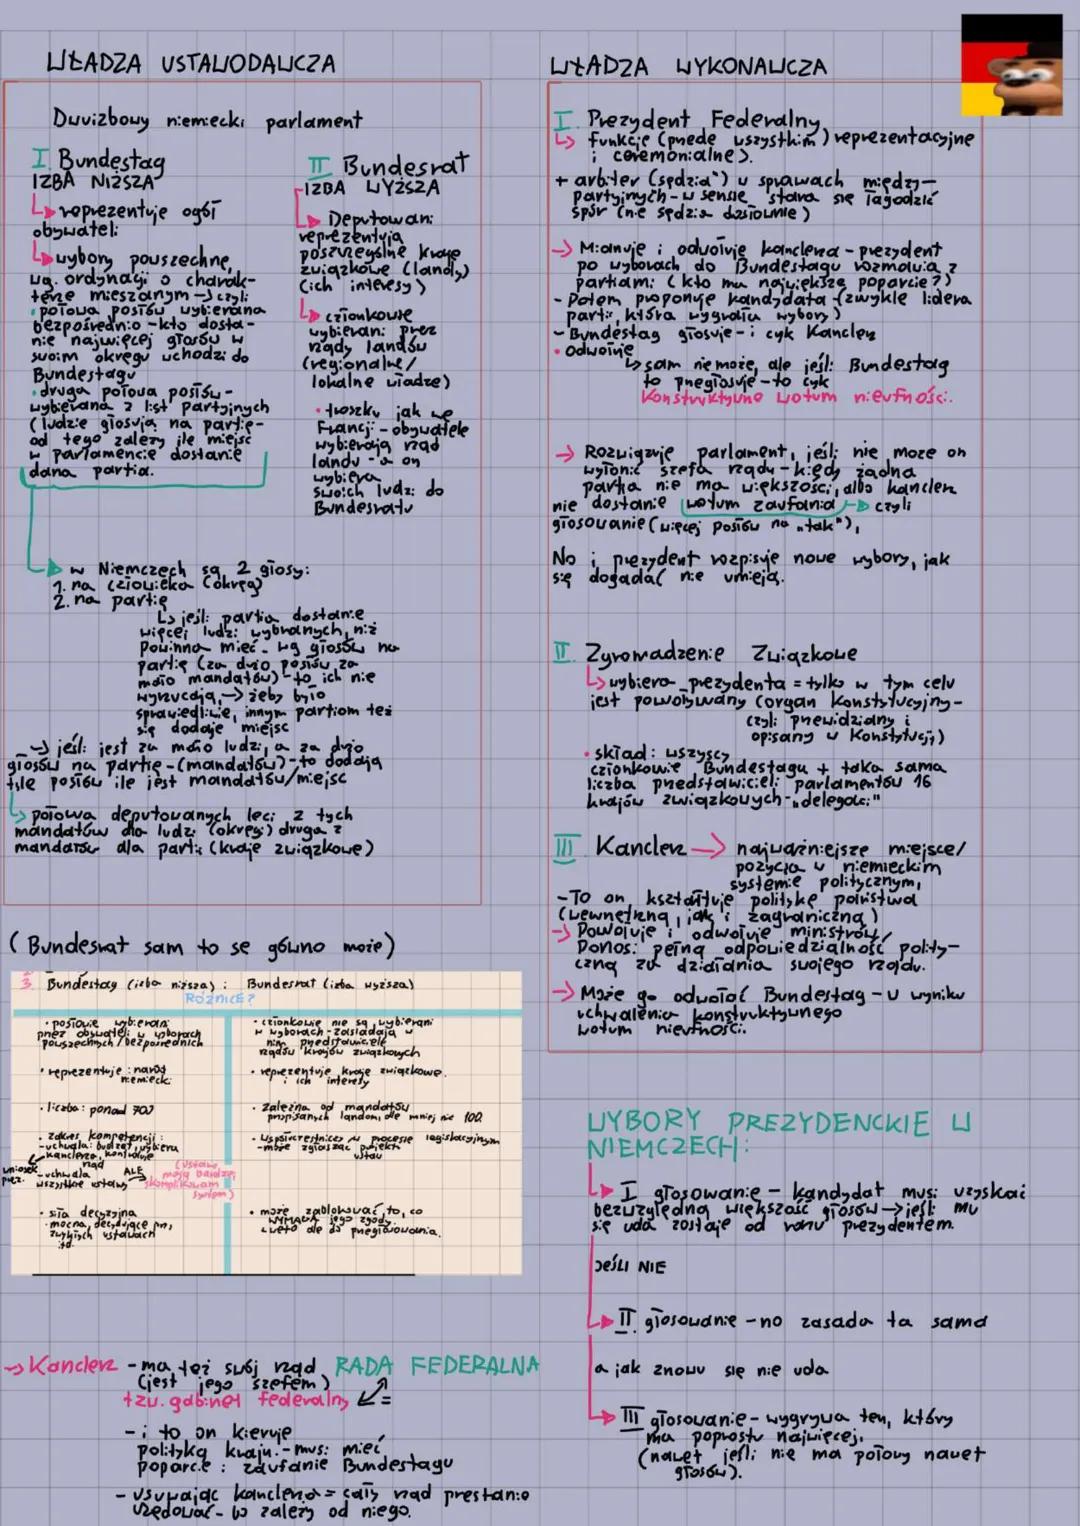 WŁADZA USTAWODAWCZA
Dwuizbowy niemiecki parlament
I. Bundestag
IZBA NIŻSZA
reprezentuje ogół
obywateli
wybory powszechne,
wg. ordynacji o charak-
terze mieszanym → czyli:
• połowa posłów wybierana
bezpośrednio - kto dosta-
nie najwięcej głosów w
swoim okręgu wchodzi do
Bundestagu
• druga połowa posłów -
wybierana z list partyjnych
(ludzie głosują na partię -
od tego zależy ile miejsc
w parlamencie dostanie
dana partia.
II Bundesrat
IZBA WYŻSZA
Deputowani
reprezentują
poszczególne kraje
związkowe (landy)
(ich interesy)
członkowie
wybierani przez
rządy landów
(regionalne/
lokalne władze)
• troszku jak we
Francji - obywatele
wybierają rząd
landu - a on
wybiera
swoich ludzi do
Bundesratu
w Niemczech są 2 głosy:
1. na człowieka (okręg)
2. na partię
↳ jeśli partia dostanie
więcej ludzi wybranych, niż
powinna mieć wg głosów na
partię (za dużo posłów za
mało mandatów) - to ich nie
wyrzucają, → żeby było
sprawiedliwie, innym partiom też
się dodaje miejsc
→ jeśli jest za mało ludzi, a za dużo
głosów na partię - (mandatów) - to dodają
tyle posłów ile jest mandatów/miejsc
↳ połowa deputowanych leci z tych
mandatów dla ludzi (okręgi) druga z
mandatów dla partii (kraje związkowe)
(Bundesrat sam to se gówno może)
3. Bundestag (izba niższa) : Bundesrat (izba wyższa)
RÓŻNICE?
• posłowie wybierani
przez obywateli w wyborach
powszechnych / bezpośrednich
• reprezentuje: naród
niemiecki
• liczba: ponad 700
• zakres kompetencji:
- uchwala: budżet, wybiera
kanclerza, kontroluje
rząd
wniosek
prez.
- uchwala ALE
wszystkie ustawy
(ustawy
mają bardziej
skomplikowany
system)
• siła decyzyjna
- mocna, decydujące przy
zwykłych ustawach
itd.
• członkowie nie są wybierani
w wyborach - zasiadają w
nim przedstawiciele
rządów krajów związkowych
• reprezentuje kraje związkowe
i ich interesy
• zależna od mandatów
przypisanych landom, ale mniej niż 100.
• współuczestniczy w procesie legislacyjnym
- może zgłaszać projekt
ustaw
• może zablokować to, co
WYMAGA jego zgody.
- weto ale do przegłosowania.
→ Kanclerz - ma też swój rząd RADA FEDERALNA
(jest jego szefem)
tzw. gabinet federalny =
- i to on kieruje
polityką kraju - musi mieć
poparcie i zaufanie Bundestagu
- usuwając kanclerza = cały rząd przestanie
urzędować - bo zależy od niego.
WŁADZA WYKONAWCZA
I. Prezydent Federalny
↳ funkcje (przede wszystkim) reprezentacyjne
i ceremonialne).
+ arbiter (sędzia") w sprawach między-
partyjnych - w sensie stara się łagodzić
spór (nie sędzia dosłownie)
→ Mianuje i odwołuje kanclerza - prezydent
po wyborach do Bundestagu rozmawia z
partiami (kto ma największe poparcie?)
- Potem proponuje kandydata - (zwykle lidera
partii, która wygrała wybory)
- Bundestag głosuje - i cyk Kanclerz
• odwołuje
↳ sam nie może, ale jeśli Bundestag
to przegłosuje - to cyk
Konstruktywne wotum nieufności.
→ Rozwiązuje parlament, jeśli nie może on
wyłonić szefa rządu - kiedy żadna
partia nie ma większości, albo kanclerz
nie dostanie wotum zaufania → czyli
głosowanie (więcej posłów na „tak"),
No i prezydent rozpisuje nowe wybory, jak
się dogadać nie umieją.
II. Zgromadzenie Związkowe
↳ wybiera prezydenta = tylko w tym celu
jest powoływany (organ konstytucyjny -
czyli przewidziany i
opisany w Konstytucji)
• skład: wszyscy
członkowie Bundestagu + taka sama
liczba przedstawicieli parlamentów 16
krajów związkowych - „delegaci"
III Kanclerz → najważniejsze miejsce/
pozycja w niemieckim
systemie politycznym,
- To on kształtuje politykę państwa
(wewnętrzną, jak i zagraniczną)
→ Powołuje i odwołuje ministrów/
Ponosi pełną odpowiedzialność polity-
czną za działania swojego rządu.
→ Może go odwołać Bundestag - w wyniku
uchwalenia konstruktywnego
wotum nieufności.
WYBORY PREZYDENCKIE W
NIEMCZECH:
I głosowanie - kandydat musi uzyskać
bezwzględną większość głosów → jeśli mu
się uda zostaje od razu prezydentem.
JEŚLI NIE
II głosowanie - no zasada ta sama
a jak znowu się nie uda
III głosowanie - wygrywa ten, który
ma poprostu najwięcej.
(nawet jeśli nie ma połowy nawet
głosów).